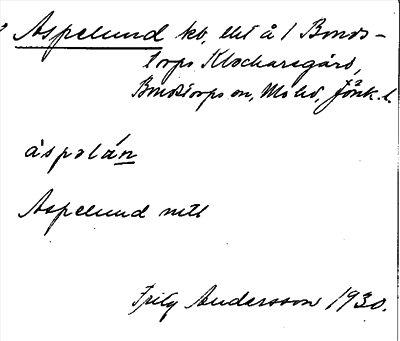 Aspelund kb, lht å 1 Bonds-
torps Klockaregård,
Bondstorps sn, Mo hd, Jönk. l.
àspalán
Aspelund mtl
Fritz Andersson 1930.